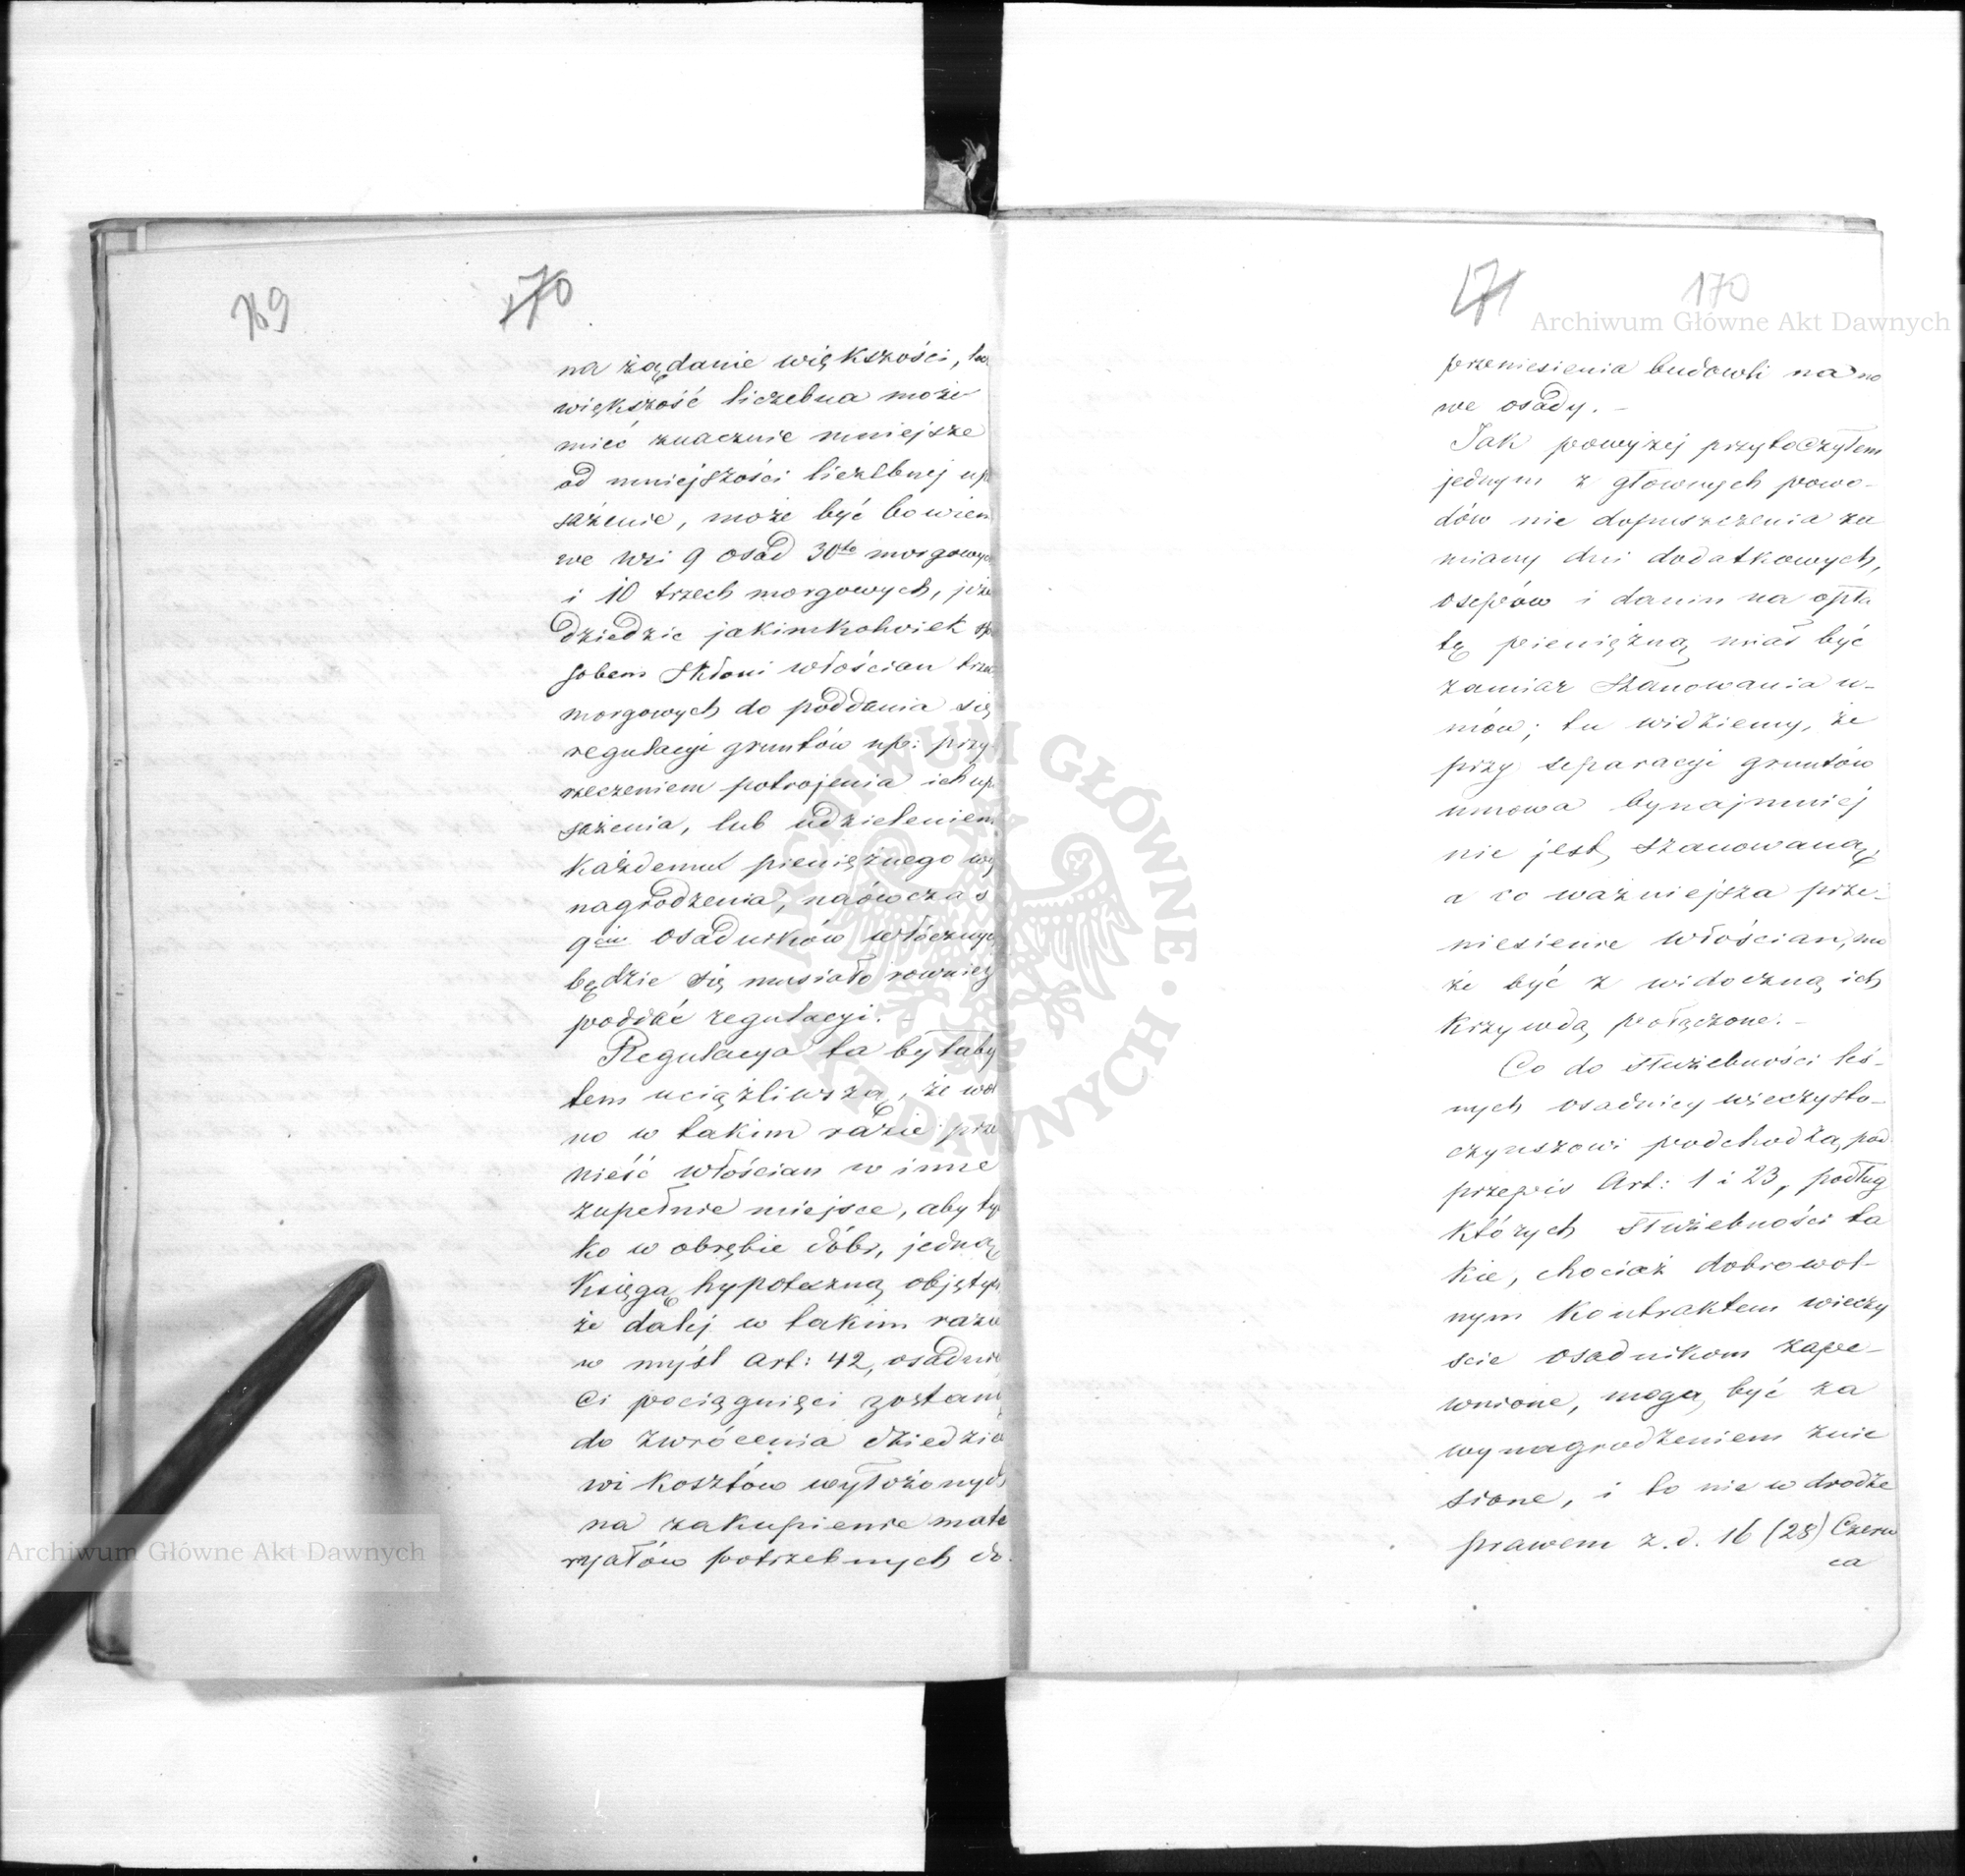 169
170
na żądanie większości, ta
większość liczebna może
mieć znacznie mniejsze
od mniejszości liczebnej upo
sażenie, może być bowiem
we wsi 9 osad 30to morgowych
i 10 trzech morgowych, jeże
dziedzic jakimkolwiek spo
sobem skłoni włościan trzech
morgowych do poddania się
regulacyi gruntów np: przy
rzeczeniem potrojenia ich upo
sażenia, lub udzieleniem
każdemu pieniężnego wy
nagrodzenia, naówczas
9ciu osadników włócznych
będzie się musiało rownież
poddać regulacyi.
Regulacya ta byłaby
tem uciążliwszą, że wol
no w takim razie prze
nieść włościan w inne
zupełnie miejsce, aby tyl
ko w obrębie dóbr, jedną
Księgą hypoteczną objętych
że dalej w takim razie
w myśl Art: 42, osadni
ci pociągnięci zostaną
do zwrócenia dziedzico
wi kosztów wyłożonych
na zakupienie mate
ryałów potrzebnych do
171
170
przeniesienia budowli na no
we osady. –
Jak powyżej przytoczyłem
jednym z głownych powo-
dów nie dopuszczenia za
miany dni dodatkowych,
osepów i danin na opła
tę pieniężną miał być
zamiar szanowania u-
mów; tu widziemy, że
przy separacyi gruntów
umowa bynajmniej
nie jest szanowaną,
a co ważniejsza prze-
niesienie włościan, mo
że być z widoczną ich
krzywdą połączone. –
Co do służebności leś-
nych osadnicy wieczysto-
czynszowi podchodzą pod
przepis Art: 1 i 23, podług
których służebności ta
kie, chociaż dobrowol-
nym Kontraktem wieczy
ście osadnikom zape-
wnione, mogą być za
wynagrodzeniem znie
sione, i to nie w drodze
prawem z. d. 16 (28) Czerw
ca
Archiwum Główne Akt Dawnych
Archiwum Główne Akt Dawnych
ARCHIWUM GŁÓWNE AKT DAWNYCH